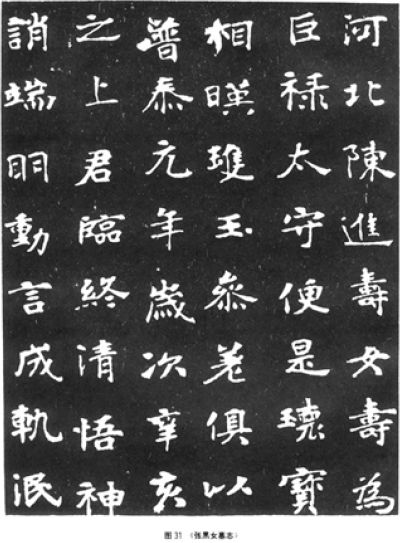 河北陳進壽女壽為
巨祿太守便是瓌寶
相暎瓘玉參差俱以
普泰元年歲次辛亥
之上君臨終清悟神
誚端明動言成軌泯
图31 《张黑女墓志》